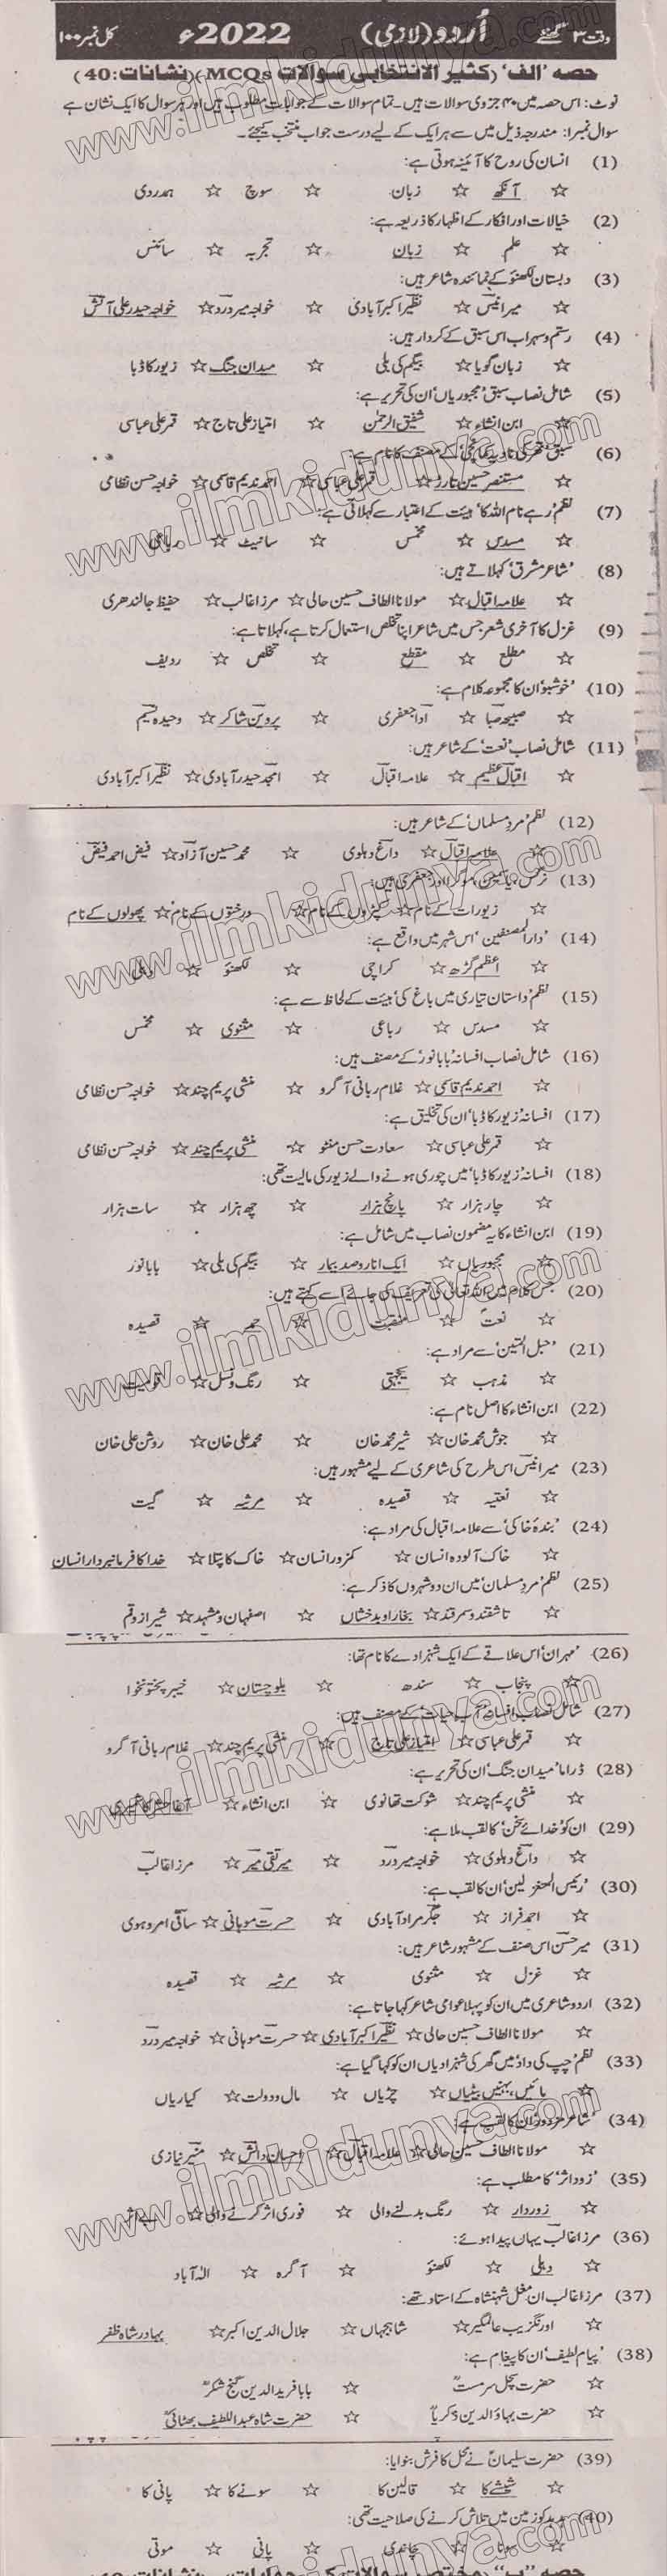 وقت ۳ گھنٹے اُردو (لازمی) 2022ء کل نمبر ۱۰۰
حصہ ’الف‘ (کثیر الانتخابی سوالات MCQs) (نشانات: 40)
نوٹ: اس حصہ میں ۴۰ جزوی سوالات ہیں۔ تمام سوالات کے جوابات مطلوب ہیں اور ہر سوال کا ایک نشان ہے
سوال نمبر۱: مندرجہ ذیل میں سے ہر ایک کے لیے درست جواب منتخب کیجئے۔
(1) انسان کی روح کا آئینہ ہوتی ہے:
☆ آنکھ ☆ زبان ☆ سوچ ☆ ہمدردی
(2) خیالات اور افکار کے اظہار کا ذریعہ ہے:
☆ علم ☆ زبان ☆ تجربہ ☆ سائنس
(3) دبستان لکھنؤ کے نمائندہ شاعر ہیں:
☆ میر انیس ☆ نظیر اکبر آبادی ☆ خواجہ میر درد ☆ خواجہ حیدر علی آتش
(4) رستم و سہراب اس سبق کے کردار ہیں:
☆ زبان گویا ☆ بیگم کی بلی ☆ میدان جنگ ☆ زیور کا ڈبا
(5) شامل نصاب سبق ’مجبوریاں‘ ان کی تحریر ہے:
☆ ابن انشاء ☆ شفیق الرحمٰن ☆ امتیاز علی تاج ☆ قمر علی عباسی
(6) سبق کے مصنف کا نام ہے:
☆ مستنصر حسین تارڑ ☆ قمر علی عباسی ☆ احمد ندیم قاسمی ☆ خواجہ حسن نظامی
(7) نظم ’رہے نام اللہ کا‘ ہیئت کے اعتبار سے کہلاتی ہے:
☆ مسدس ☆ مخمس ☆ سانیٹ ☆ رباعی
(8) ’شاعر مشرق‘ کہلاتے ہیں:
☆ علامہ اقبال ☆ مولانا الطاف حسین حالی ☆ مرزا غالب ☆ حفیظ جالندھری
(9) غزل کا آخری شعر جس میں شاعر اپنا تخلص استعمال کرتا ہے، کہلاتا ہے:
☆ مطلع ☆ مقطع ☆ تخلص ☆ ردیف
(10) ’خوشبو‘ ان کا مجموعہ کلام ہے:
☆ صبیحہ صبا ☆ ادا جعفری ☆ پروین شاکر ☆ وحیدہ نسیم
(11) شامل نصاب ’نعت‘ کے شاعر ہیں:
☆ اقبال عظیم ☆ علامہ اقبال ☆ امجد حیدر آبادی ☆ نظیر اکبر آبادی
(12) نظم ’مردِ مسلماں‘ کے شاعر ہیں:
☆ علامہ اقبال ☆ داغ دہلوی ☆ محمد حسین آزاد ☆ فیض احمد فیض
(13) نرگس، یاسمین، موگرا اور جعفری ہیں:
☆ زیورات کے نام ☆ کپڑوں کے نام ☆ درختوں کے نام ☆ پھولوں کے نام
(14) ’دارالمصنفین‘ اس شہر میں واقع ہے:
☆ اعظم گڑھ ☆ کراچی ☆ لکھنؤ ☆ دہلی
(15) نظم ’داستان تیاری میں باغ کی‘ ہیئت کے لحاظ سے ہے:
☆ مسدس ☆ رباعی ☆ مثنوی ☆ مخمس
(16) شامل نصاب افسانہ ’بابا نور‘ کے مصنف ہیں:
☆ احمد ندیم قاسمی ☆ غلام ربانی آگرو ☆ منشی پریم چند ☆ خواجہ حسن نظامی
(17) افسانہ ’زیور کا ڈبا‘ ان کی تخلیق ہے:
☆ قمر علی عباسی ☆ سعادت حسن منٹو ☆ منشی پریم چند ☆ خواجہ حسن نظامی
(18) افسانہ ’زیور کا ڈبا‘ میں چوری ہونے والے زیور کی مالیت تھی:
☆ چار ہزار ☆ پانچ ہزار ☆ چھ ہزار ☆ سات ہزار
(19) ابن انشاء کا یہ مضمون نصاب میں شامل ہے:
☆ مجبوریاں ☆ ایک انار و صد بیمار ☆ بیگم کی بلی ☆ بابا نور
(20) جس کلام میں اللہ تعالیٰ کی تعریف کی جائے اسے کہتے ہیں:
☆ نعت ☆ منقبت ☆ حمد ☆ قصیدہ
(21) ’حبل المتین‘ سے مراد ہے:
☆ مذہب ☆ یکجہتی ☆ رنگ و نسل ☆ قومیت
(22) ابن انشاء کا اصل نام ہے:
☆ جوش محمد خان ☆ شیر محمد خان ☆ محمد علی خان ☆ روشن علی خان
(23) میر انیس اس طرح کی شاعری کے لیے مشہور ہیں:
☆ نعتیہ ☆ قصیدہ ☆ مرثیہ ☆ گیت
(24) ’بندۂ خاکی‘ سے علامہ اقبال کی مراد ہے:
☆ خاک آلودہ انسان ☆ کمزور انسان ☆ خاک کا پتلا ☆ خدا کا فرمانبردار انسان
(25) نظم ’مردِ مسلمان‘ میں ان دو شہروں کا ذکر ہے:
☆ تاشقند و سمرقند ☆ بخارا و بدخشاں ☆ اصفہان و مشہد ☆ شیراز و قم
(26) ’مہران‘ اس علاقے کے ایک شہزادے کا نام تھا:
☆ پنجاب ☆ سندھ ☆ بلوچستان ☆ خیبر پختونخوا
(27) شامل نصاب افسانہ ’آب حیات‘ کے مصنف ہیں:
☆ قمر علی عباسی ☆ امتیاز علی تاج ☆ منشی پریم چند ☆ غلام ربانی آگرو
(28) ڈراما ’میدان جنگ‘ ان کی تحریر ہے:
☆ منشی پریم چند ☆ شوکت تھانوی ☆ ابن انشاء ☆ آغا حشر کاشمیری
(29) ان کو ’خدائے سخن‘ کا لقب ملا ہے:
☆ داغ دہلوی ☆ خواجہ میر درد ☆ میر تقی میر ☆ مرزا غالب
(30) ’رئیس المتغزلین‘ ان کا لقب ہے:
☆ احمد فراز ☆ جگر مراد آبادی ☆ حسرت موہانی ☆ ساقی امروہوی
(31) میر حسن اس صنف کے مشہور شاعر ہیں:
☆ غزل ☆ مثنوی ☆ مرثیہ ☆ قصیدہ
(32) اردو شاعری میں ان کو پہلا عوامی شاعر کہا جاتا ہے:
☆ مولانا الطاف حسین حالی ☆ نظیر اکبر آبادی ☆ حسرت موہانی ☆ خواجہ میر درد
(33) نظم ’چپ کی داد‘ میں گھر کی شہزادیاں ان کو کہا گیا ہے:
☆ مائیں، بہنیں، بیٹیاں ☆ چڑیاں ☆ مال و دولت ☆ کیاریاں
(34) ’شاعر مزدور‘ ان کا لقب ہے:
☆ مولانا الطاف حسین حالی ☆ علامہ اقبال ☆ احسان دانش ☆ منیر نیازی
(35) ’زود اثر‘ کا مطلب ہے:
☆ زوردار ☆ رنگ بدلنے والی ☆ فوری اثر کرنے والی ☆ بے اثر
(36) مرزا غالب یہاں پیدا ہوئے:
☆ دہلی ☆ لکھنؤ ☆ آگرہ ☆ الٰہ آباد
(37) مرزا غالب ان مغل شہنشاہ کے استاد تھے:
☆ اورنگزیب عالمگیر ☆ شاہجہاں ☆ جلال الدین اکبر ☆ بہادر شاہ ظفر
(38) ’پیام لطیف‘ ان کا پیغام ہے:
☆ حضرت سچل سرمستؒ ☆ بابا فرید الدین گنج شکرؒ
☆ حضرت بہاؤ الدین ذکریاؒ ☆ حضرت شاہ عبداللطیف بھٹائیؒ
(39) حضرت سلیمانؑ نے محل کا فرش بنوایا:
☆ شیشے کا ☆ قالین کا ☆ سونے کا ☆ پانی کا
(40) ہدہد کو زمین میں تلاش کرنے کی صلاحیت تھی:
☆ سونا ☆ چاندی ☆ پانی ☆ موتی
www.ilmkidunya.com
www.ilmkidunya.com
www.ilmkidunya.com
www.ilmkidunya.com
www.ilmkidunya.com
www.ilmkidunya.com